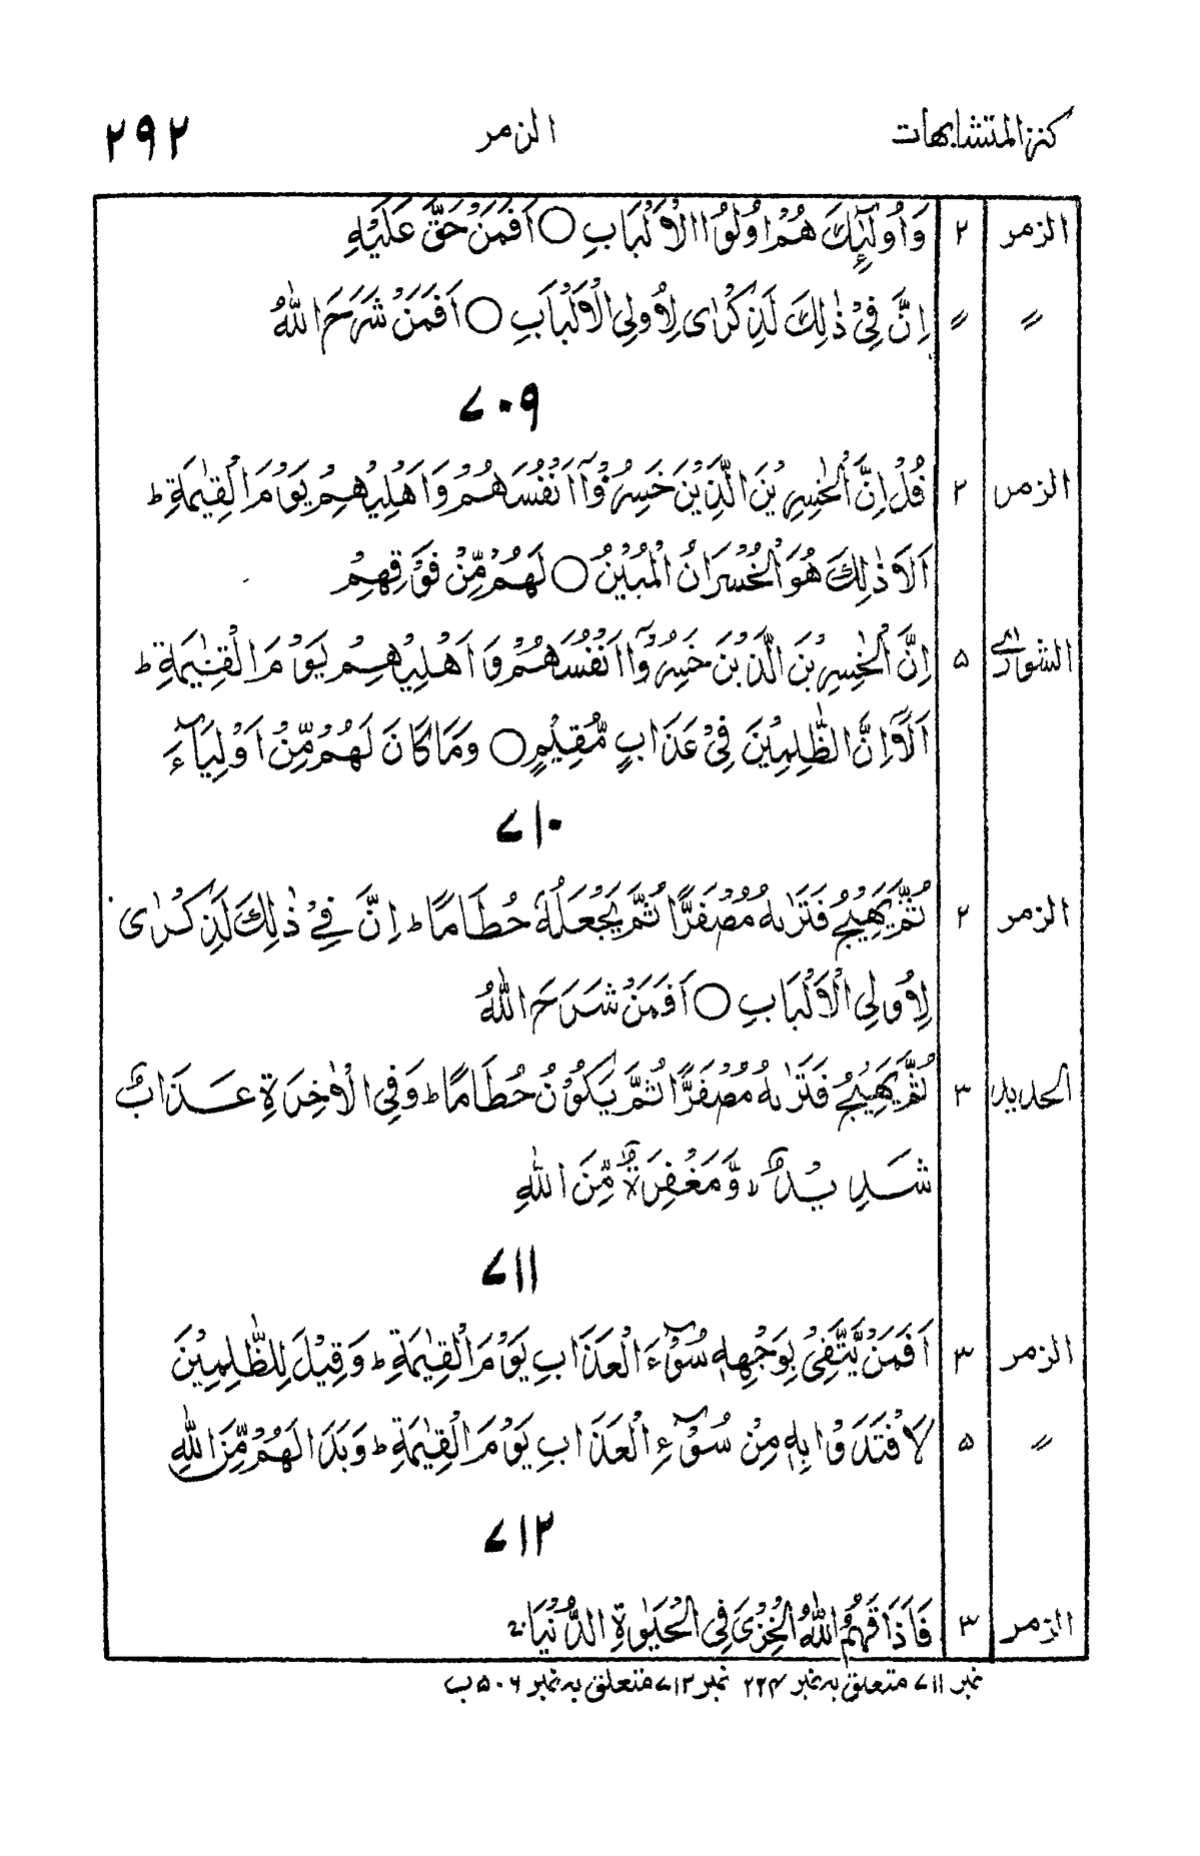 كنز المتشابهات الزمر ٢٩٢
الزمر ٢ وَاُولٰٓئِكَ هُمْ اُولُوا الْاَلْبَابِ ○ اَفَمَنْ حَقَّ عَلَيْهِ
〃 〃 اِنَّ فِيْ ذٰلِكَ لَذِكْرٰى لِاُولِى الْاَلْبَابِ ○ اَفَمَنْ شَرَحَ اللّٰهُ
٧٠٩
الزمر ٢ قُلْ اِنَّ الْخٰسِرِيْنَ الَّذِيْنَ خَسِرُوْٓا اَنْفُسَهُمْ وَاَهْلِيْهِمْ يَوْمَ الْقِيٰمَةِ ط
اَلَا ذٰلِكَ هُوَ الْخُسْرَانُ الْمُبِيْنُ ○ لَهُمْ مِّنْ فَوْقِهِمْ
الشورٰى ٥ اِنَّ الْخٰسِرِيْنَ الَّذِيْنَ خَسِرُوْٓا اَنْفُسَهُمْ وَاَهْلِيْهِمْ يَوْمَ الْقِيٰمَةِ ط
اَلَآ اِنَّ الظّٰلِمِيْنَ فِيْ عَذَابٍ مُّقِيْمٍ ○ وَمَا كَانَ لَهُمْ مِّنْ اَوْلِيَآءَ
٧١٠
الزمر ٢ ثُمَّ يَهِيْجُ فَتَرٰىهُ مُصْفَرًّا ثُمَّ يَجْعَلُهٗ حُطَامًا ط اِنَّ فِيْ ذٰلِكَ لَذِكْرٰى
لِاُولِى الْاَلْبَابِ ○ اَفَمَنْ شَرَحَ اللّٰهُ
الحديد ٣ ثُمَّ يَهِيْجُ فَتَرٰىهُ مُصْفَرًّا ثُمَّ يَكُوْنُ حُطَامًا ط وَفِى الْاٰخِرَةِ عَذَابٌ
شَدِيْدٌ وَّمَغْفِرَةٌ مِّنَ اللّٰهِ
٧١١
الزمر ٣ اَفَمَنْ يَّتَّقِىْ بِوَجْهِهٖ سُوْٓءَ الْعَذَابِ يَوْمَ الْقِيٰمَةِ ط وَقِيْلَ لِلظّٰلِمِيْنَ
〃 ٥ لَافْتَدَوْا بِهٖ مِنْ سُوْٓءِ الْعَذَابِ يَوْمَ الْقِيٰمَةِ ط وَبَدَا لَهُمْ مِّنَ اللّٰهِ
٧١٢
الزمر ٣ فَاَذَاقَهُمُ اللّٰهُ الْخِزْىَ فِى الْحَيٰوةِ الدُّنْيَا ج
نمبر ٧١١ متعلق بہ نمبر ٢٢٤ نمبر ٧١٢ متعلق بہ نمبر ٥٠٦ ب